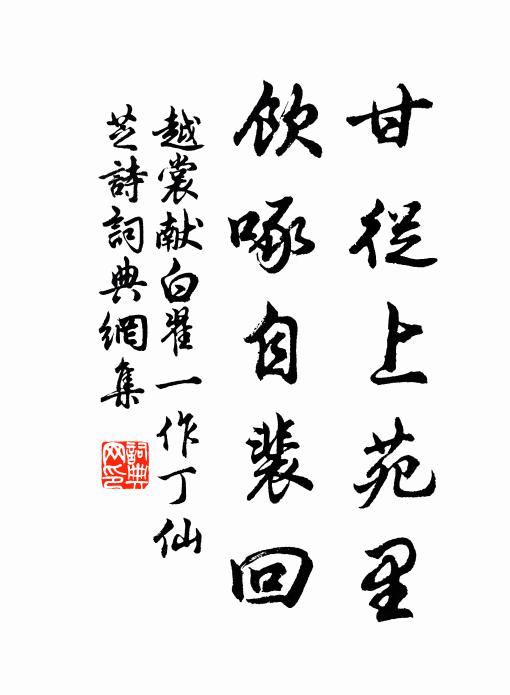 甘從上苑里
飲啄自裴回
越裳献白翟一作丁仙
芝詩詞典網集
詞典
网印